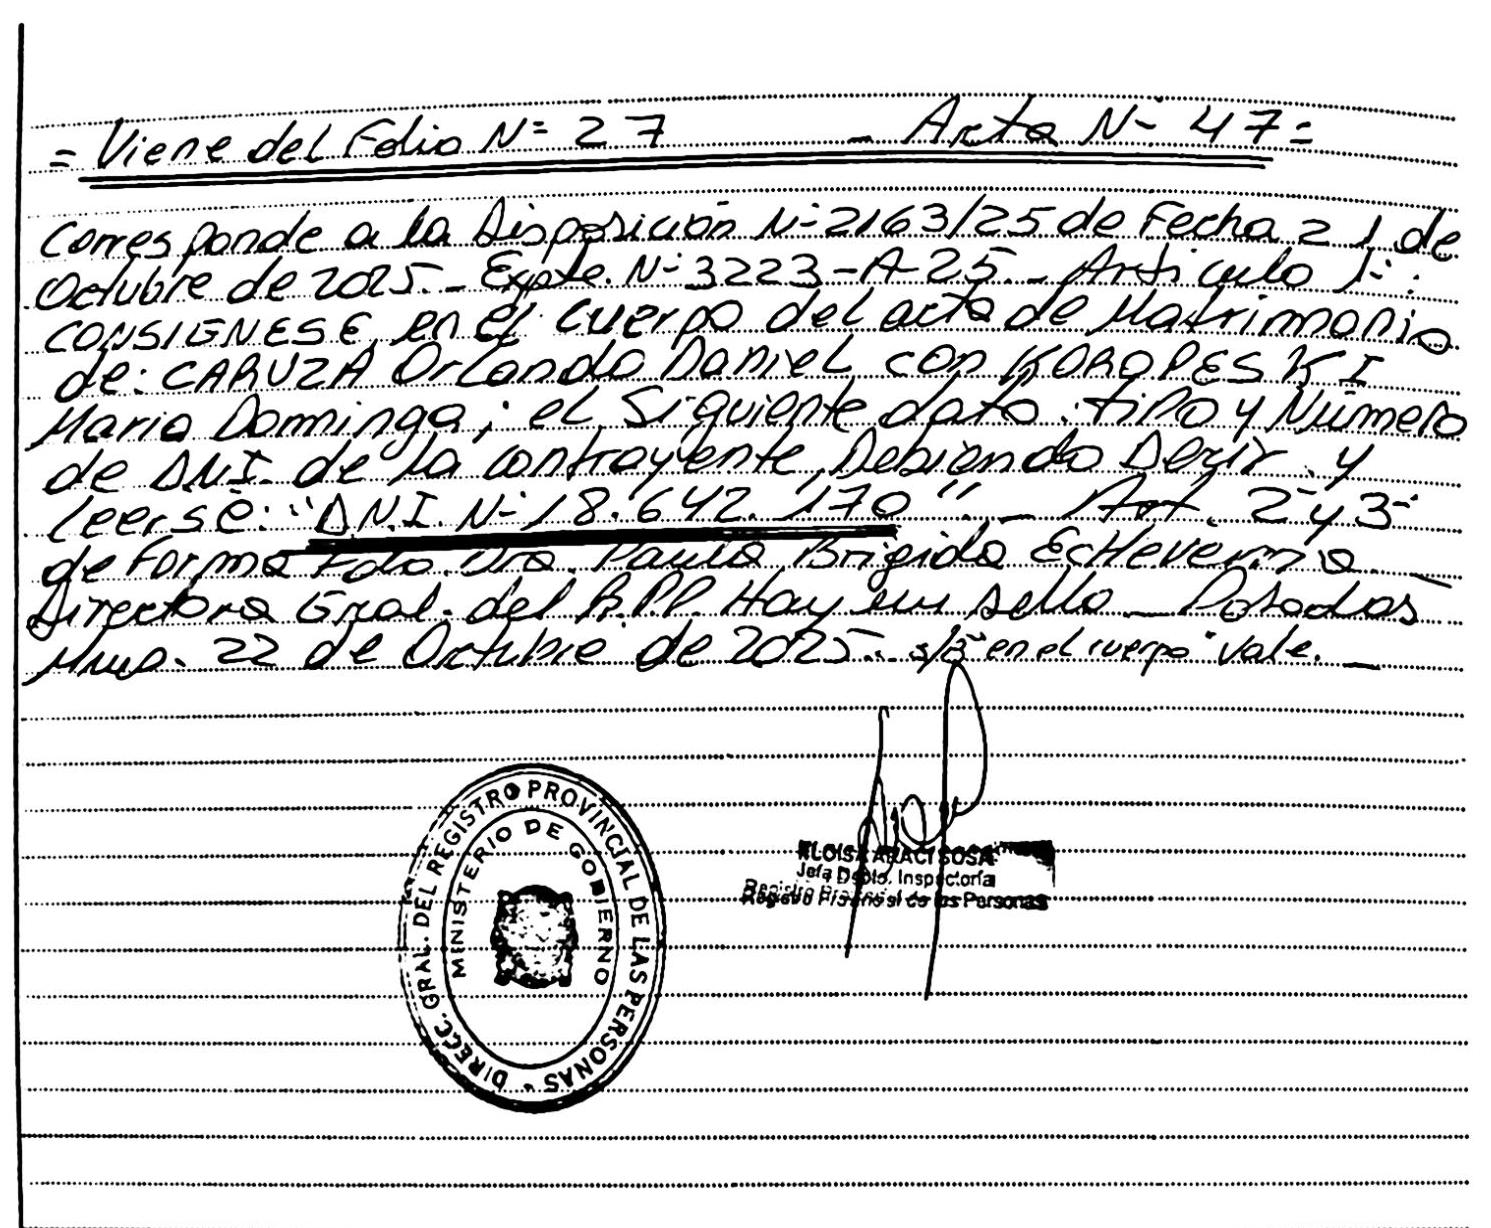 = Viene del Folio Nº 27 _ Acta Nº 47 =
Corresponde a la Disposición Nº 2163/25 de Fecha 21 de
Octubre de 2025._ Expte. Nº 3223-A-25._ Articulo 1º:
CONSIGNESE en el cuerpo del acta de Matrimonio
de: CARUZA Orlando Daniel con KOROPESKI
Maria Dominga; el Siguiente dato: tipo y Número
de DNI. de la contrayente, Debiendo Decir y
leerse: "D.N.I. Nº 18.642.170"._ Art. 2º y 3º
de Forma Fdo. Dra. Paula Brigida Echeverria
Directora Gral. del R.P.P. Hay un sello _ Posadas
Mnes. 22 de Octubre de 2025._ s/B "en el cuerpo" Vale._
DIRECC. GRAL. DEL REGISTRO PROVINCIAL DE LAS PERSONAS
MINISTERIO DE GOBIERNO
ELOISA ARACI SOSA
Jefa Dpto. Inspectoria
Registro Provincial de las Personas